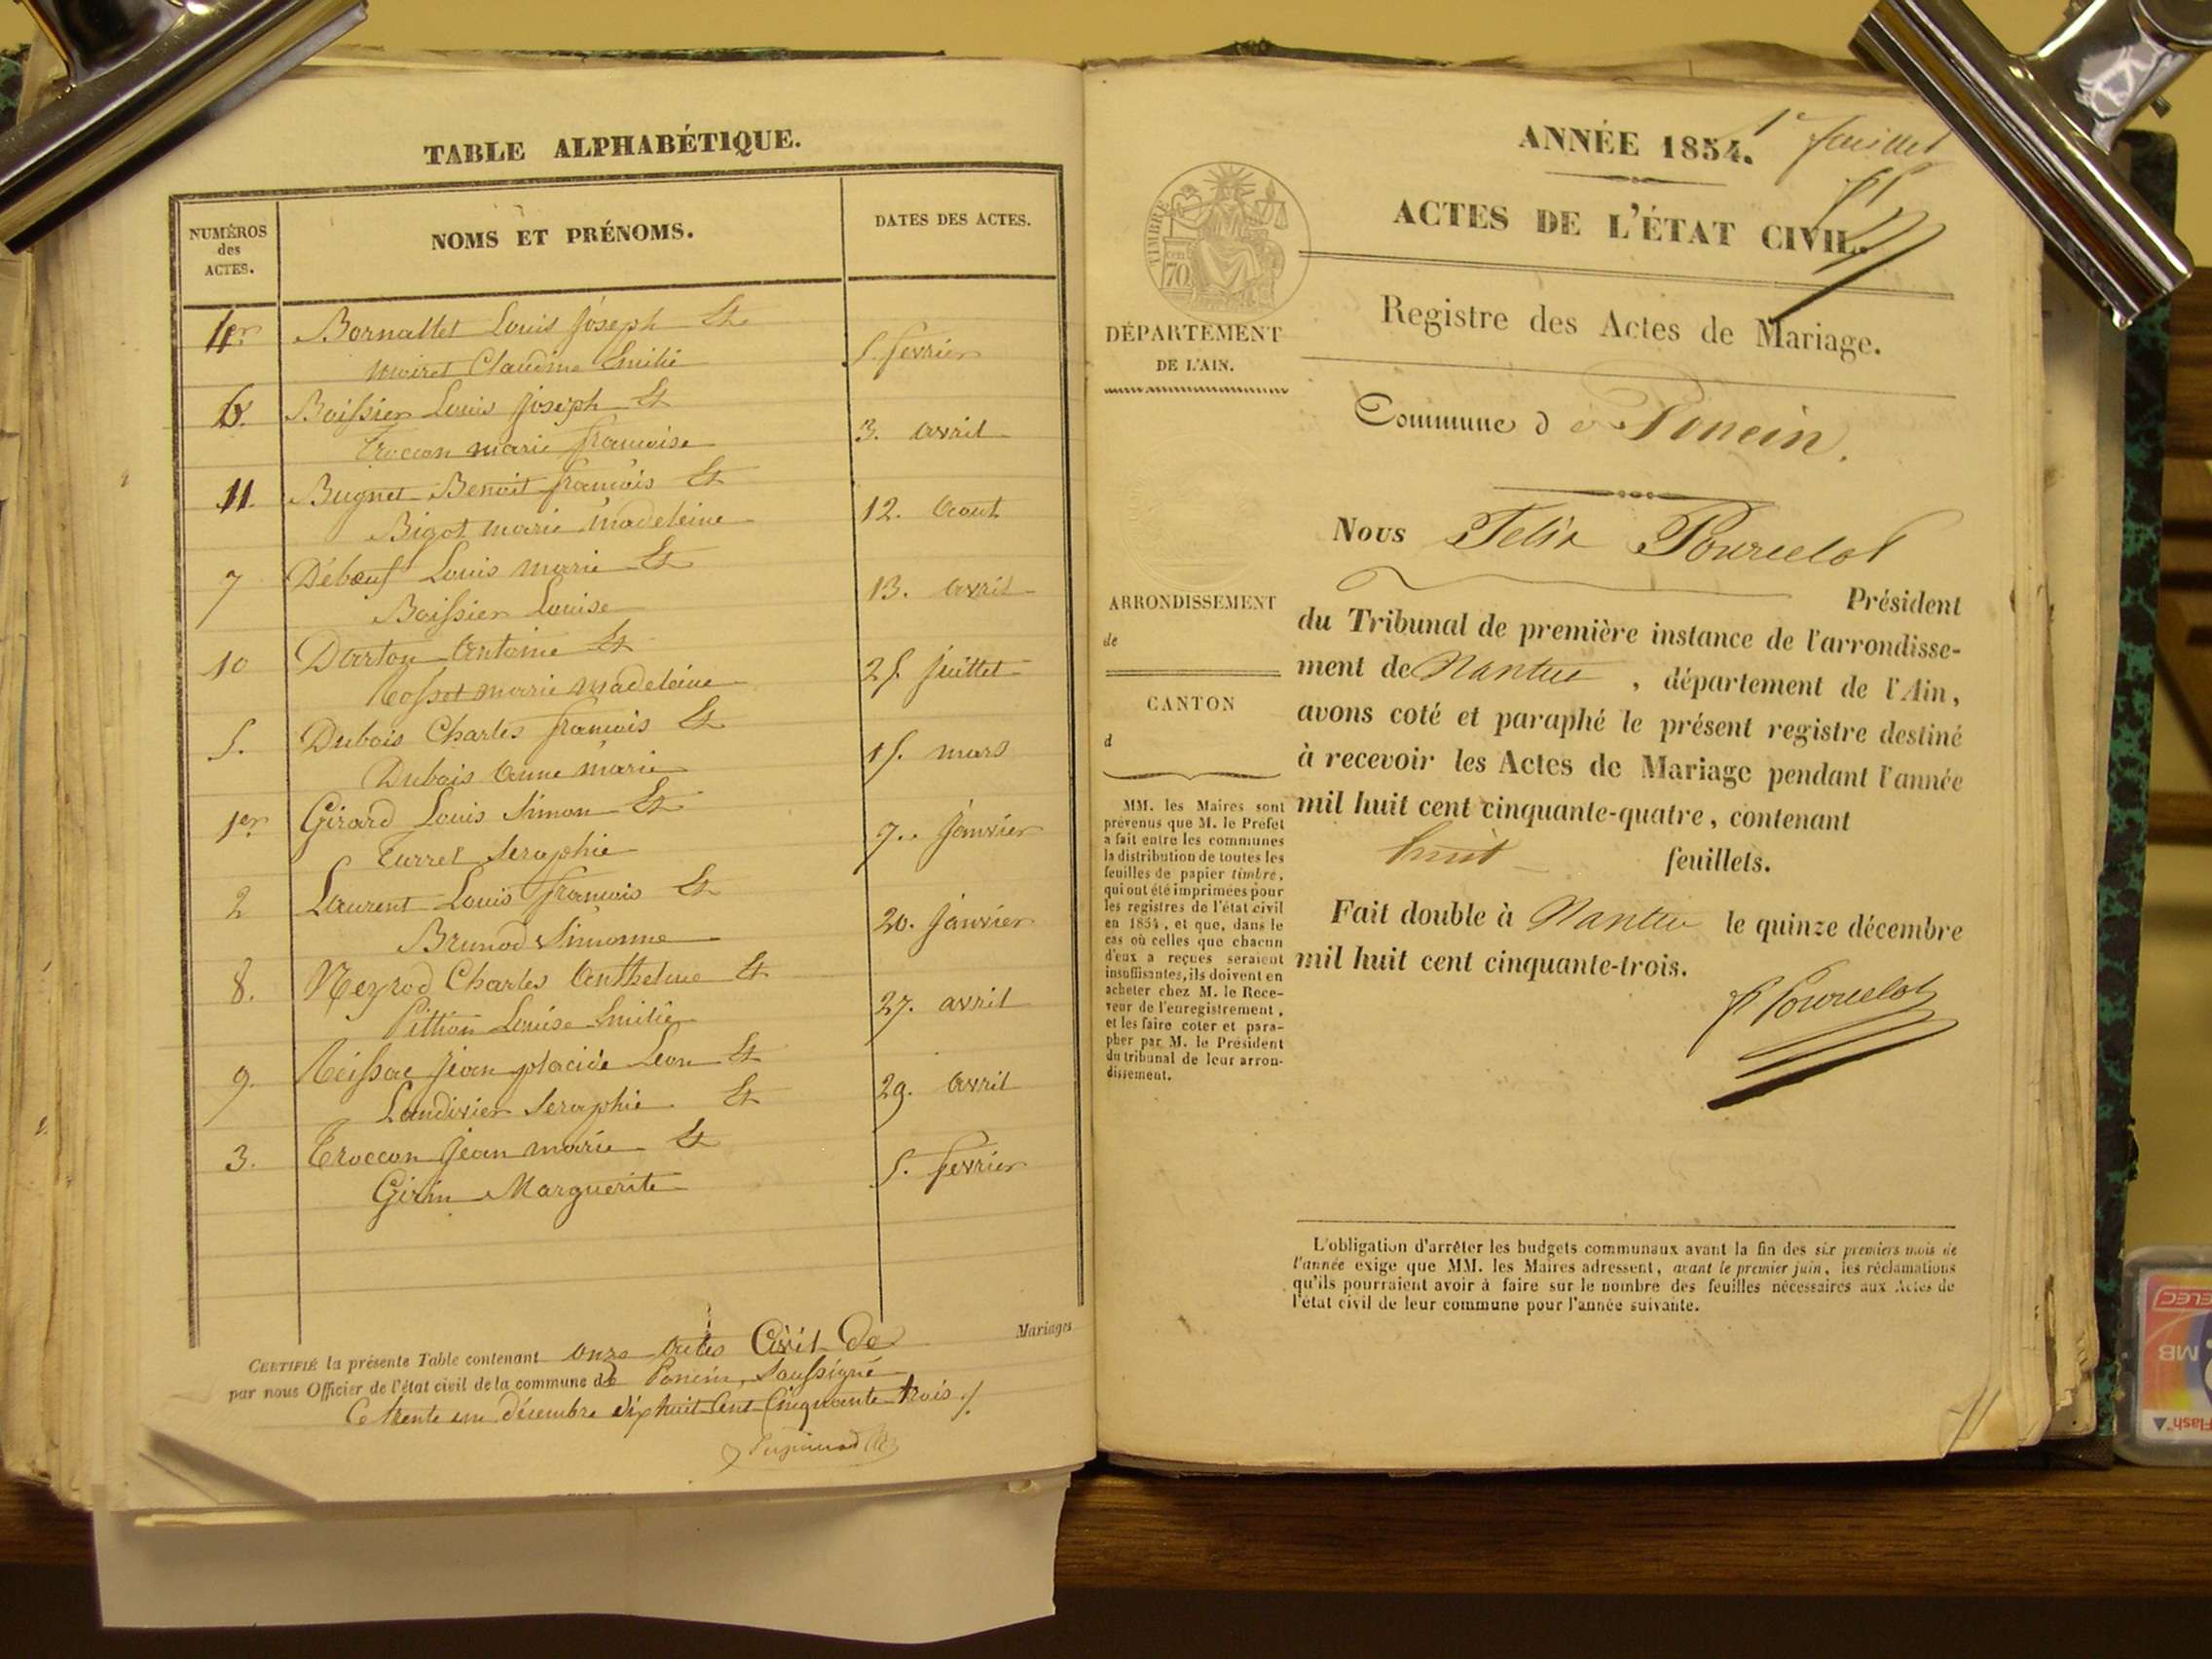 TABLE ALPHABÉTIQUE.
NUMÉROS
des
ACTES.
NOMS ET PRÉNOMS.
DATES DES ACTES.
4 Bornallet Louis Joseph Et
Moiret Claudine Emilie 5. fevrier
6. Boissier Louis Joseph Et
Troccon marie françoise 3. avril
11. Bugnet Benoit françois Et
Bigot marie madeleine 12. aout
7 Débœuf Louis marie Et
Boissier Louise 13. avril
10 Darton antoine Et
Rosset marie madeleine 25 juillet
5. Dubois Charles françois Et
Dubois anne marie 15. mars
1er Girard Louis Simon Et
Turrel Seraphie 7. janvier
2 Laurent Louis françois Et
Brunod Simonne 20. janvier
8. Neyrod Charles anthelme Et
Pittion Louise Emilie 27. avril
9. Reissac jean placide Leon Et
Landivier Seraphie Et 29. avril
3. Troccon jean marie Et
Girin Marguerite 5. fevrier
Mariages
CERTIFIÉ la présente Table contenant onze actes Civil De
par nous Officier de l'état civil de la commune de Poncin, Soussigné
Ce trente un décembre dix huit Cent Cinquante trois
1er feuillet
ANNÉE 1854.
ACTES DE L'ÉTAT CIVIL.
TIMBRE
70
Registre des Actes de Mariage.
DÉPARTEMENT
DE L'AIN.
Commune d e Poncin.
Nous Felix Pourcelot
Président
du Tribunal de première instance de l'arrondisse-
ment de Nantua , département de l'Ain,
avons coté et paraphé le présent registre destiné
à recevoir les Actes de Mariage pendant l'année
mil huit cent cinquante-quatre, contenant
huit feuillets.
Fait double à Nantua le quinze décembre
mil huit cent cinquante-trois.
F Pourcelot
ARRONDISSEMENT
de
CANTON
d
MM. les Maires sont
prévenus que M. le Préfet
a fait entre les communes
la distribution de toutes les
feuilles de papier timbré,
qui ont été imprimées pour
les registres de l'état civil
en 1854, et que, dans le
cas où celles que chacun
d'eux a reçues seraient
insuffisantes, ils doivent en
acheter chez M. le Rece-
veur de l'enregistrement,
et les faire coter et para-
pher par M. le Président
du tribunal de leur arron-
dissement.
L'obligation d'arrêter les budgets communaux avant la fin des six premiers mois de
l'année exige que MM. les Maires adressent, avant le premier juin, les réclamations
qu'ils pourraient avoir à faire sur le nombre des feuilles nécessaires aux Actes de
l'état civil de leur commune pour l'année suivante.
MB
Flash